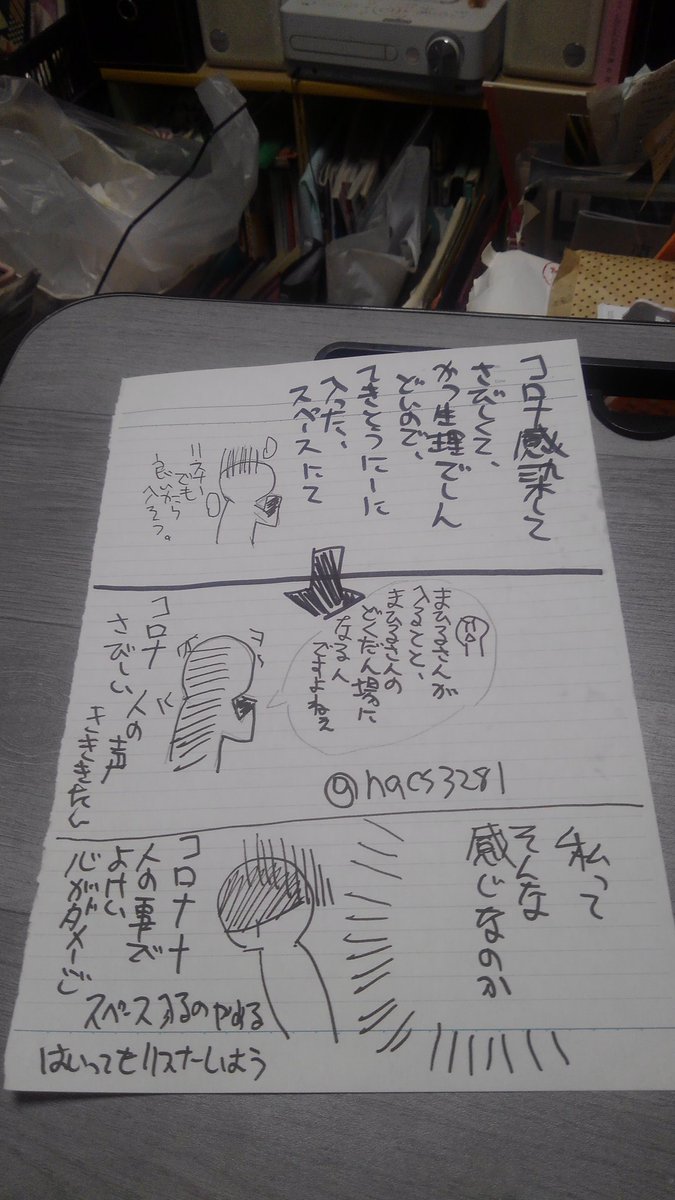 コロナ感染して
さびしくて、
かつ生理でしん
どいので、
てきとうにーに
入った、
スペースにて
でも
良いから
入ろう。
まひるさんが
入ること、
まひるさんの
どくだん場に
なる人
ですよねぇ
コロナ
さびしい
人の
声
きききたい
@nacs3281
私って
そんな
感じなのか
コロナナ
人の事で
よけい
心がダメージ
スペース入るのやめる
はいってもリスナーしよう